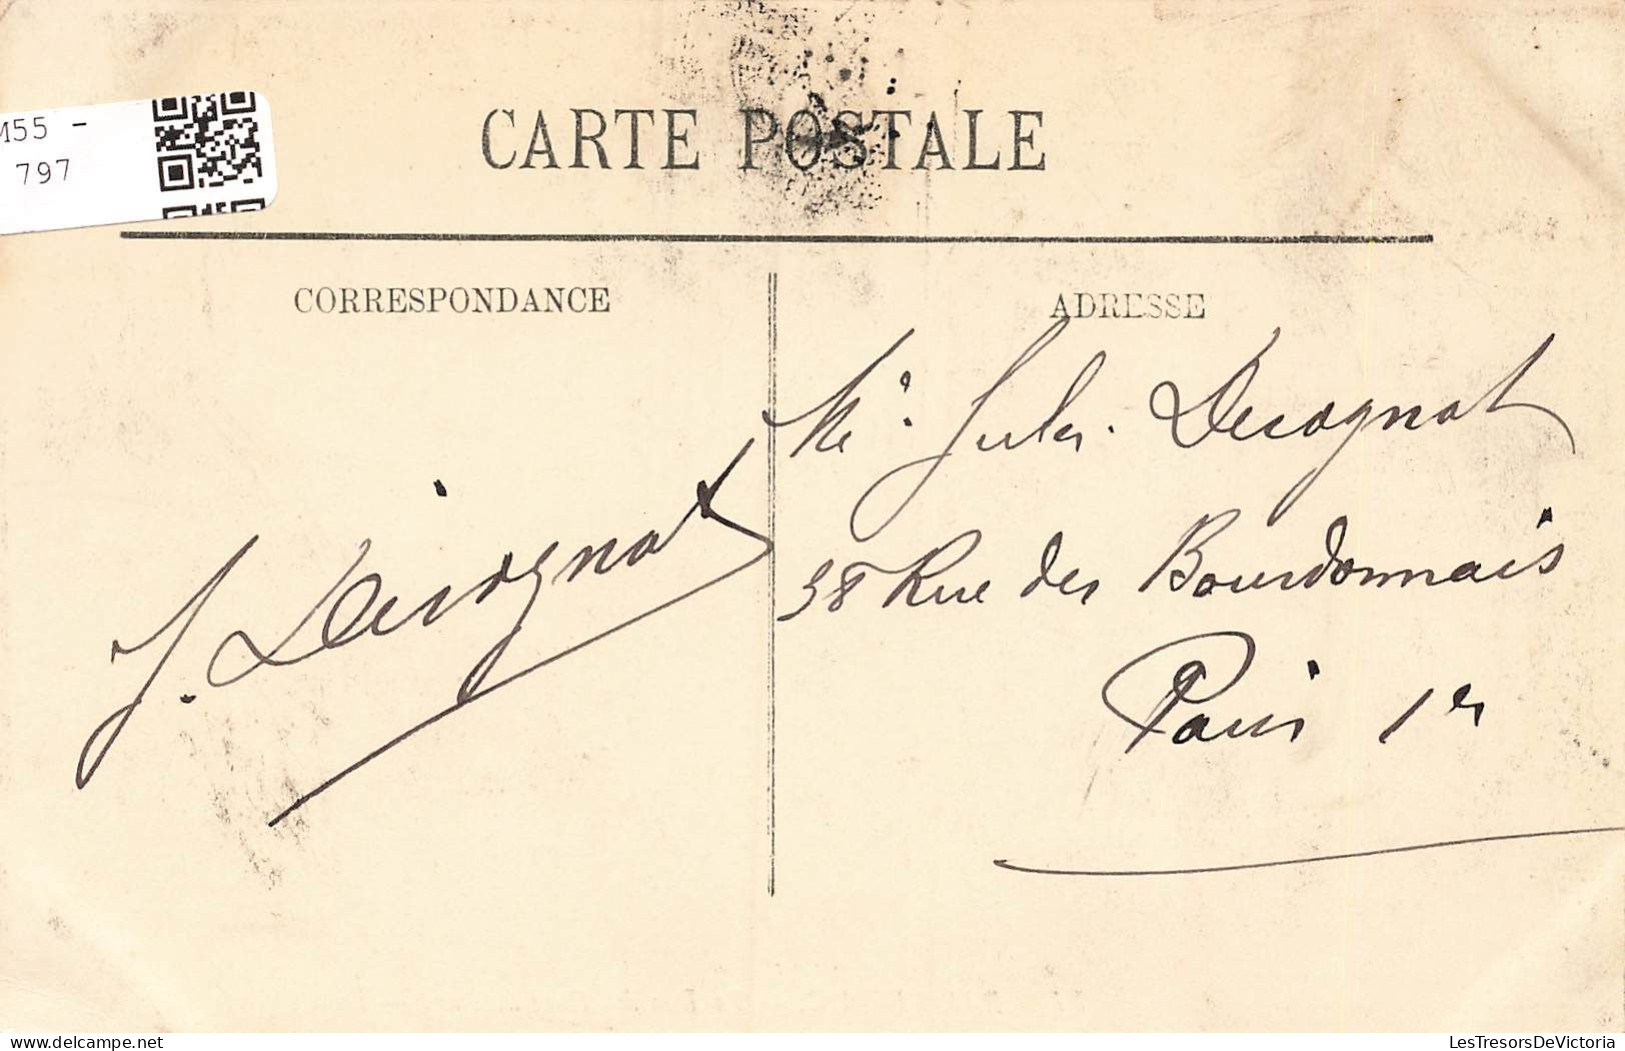 M55 -
797
CARTE POSTALE
CORRESPONDANCE
ADRESSE
Mr. Jules Decognat
38 Rue des Bourdonnais
Paris 1er
J. Decognat
delcampe.net
LesTresorsDeVictoria